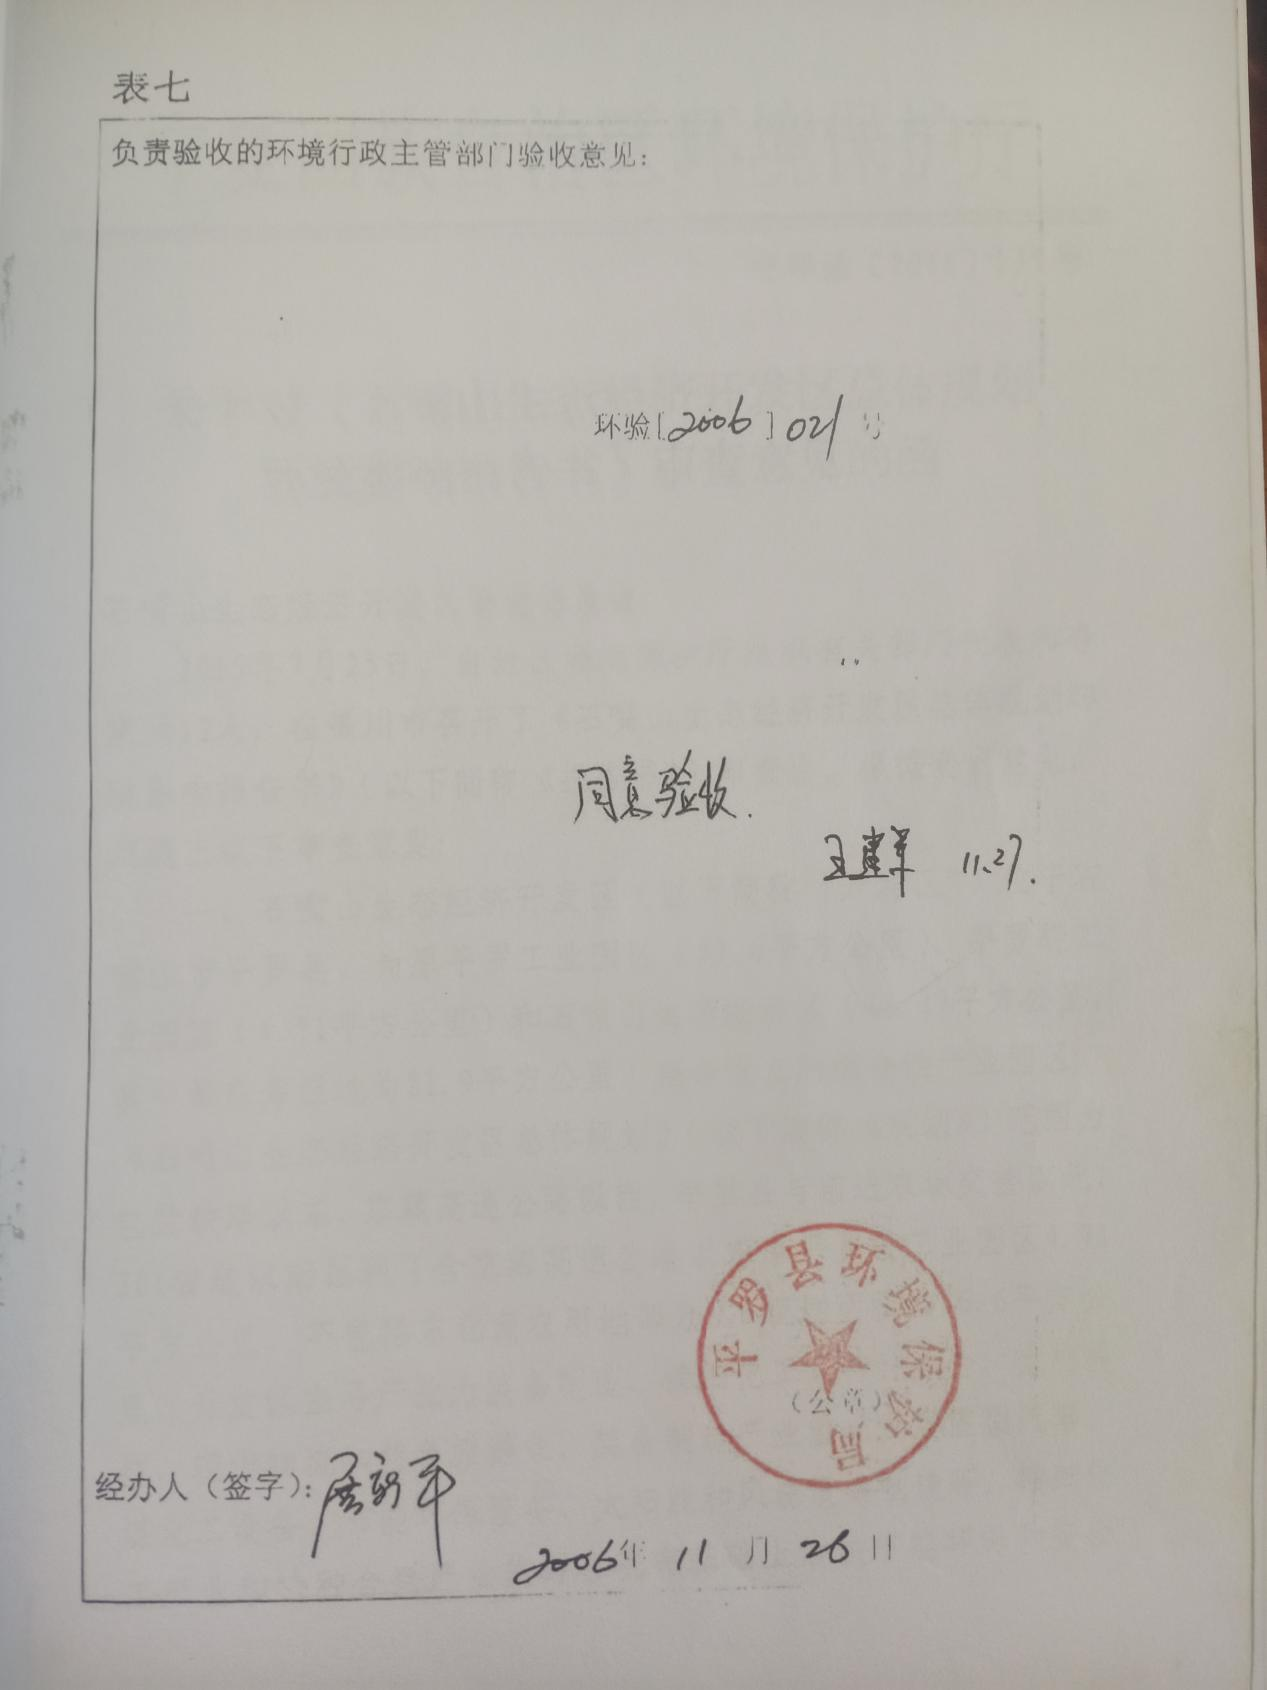 表七
负责验收的环境行政主管部门验收意见：
环验[2006]021号
同意验收.
王建军 11.27.
平罗县环境保护局
（公章）
经办人（签字）：
2006年11月26日